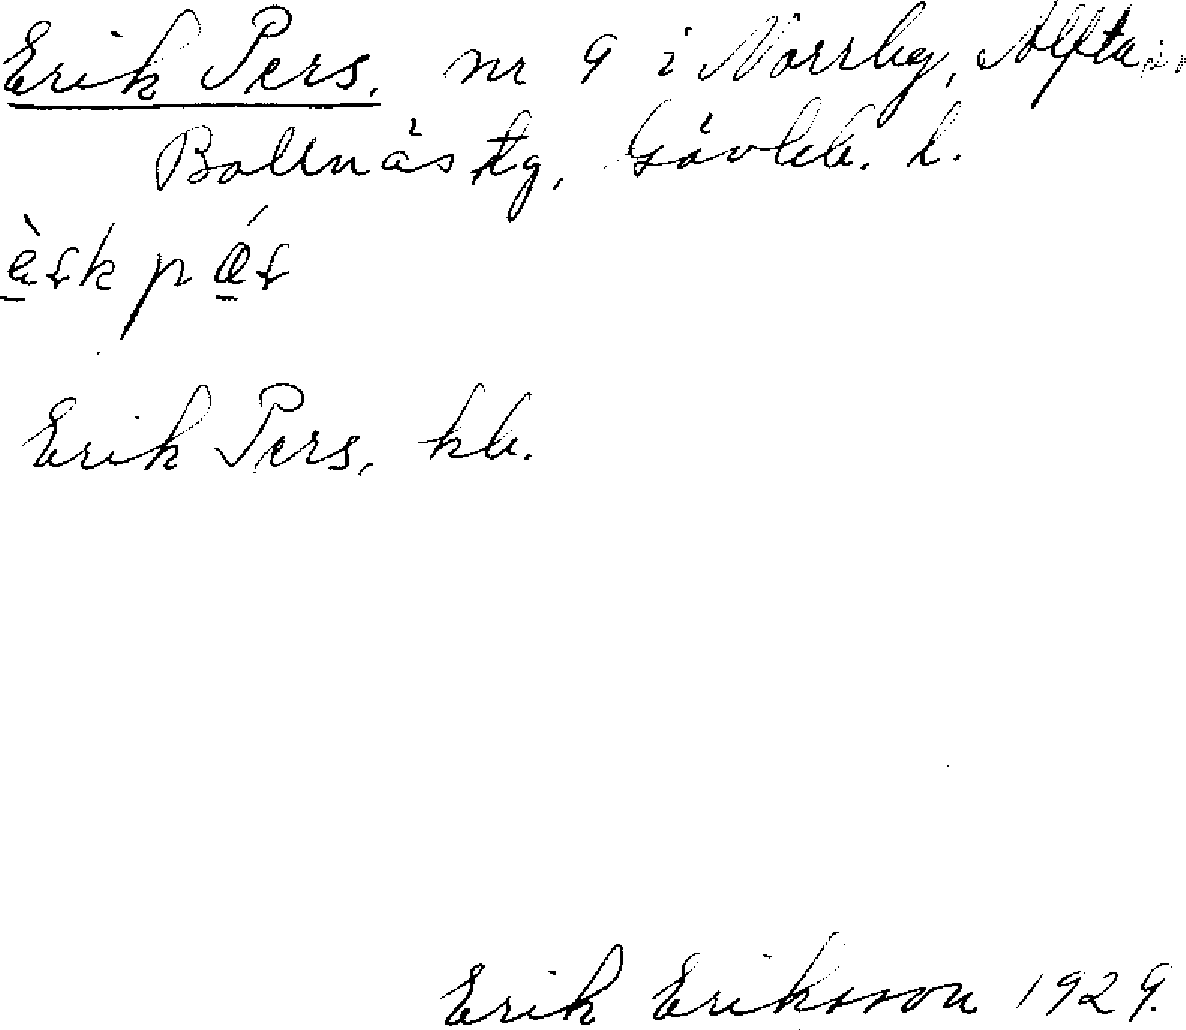 Erik Pers, nr 9 i Norrby, Alfta sn
Bollnäs tg, Gävleb. l.
Erik Pers, kb.
Erik Eriksson 1929.